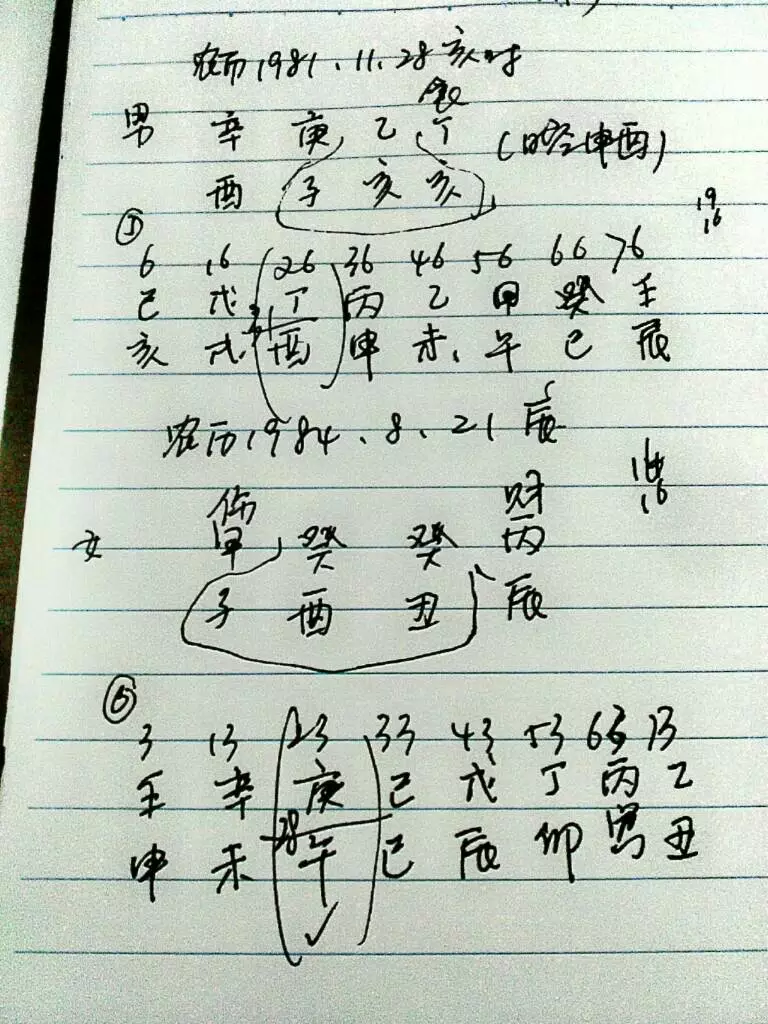 农历1981、11、28亥时
食
男 辛 庚 乙 丁 (空申酉)
酉 子 亥 亥
① 19 16
6 16 26 36 46 56 66 76
己 戊 丁 丙 乙 甲 癸 壬
亥 戌 酉 申 未 午 巳 辰
农历1984、8、21 辰
伤 财 16
女 甲 癸 癸 丙
子 酉 丑 辰
⑥
3 13 23 33 43 53 63 73
壬 辛 庚 己 戊 丁 丙 乙
申 未 28 午 巳 辰 卯 寅 丑
✓